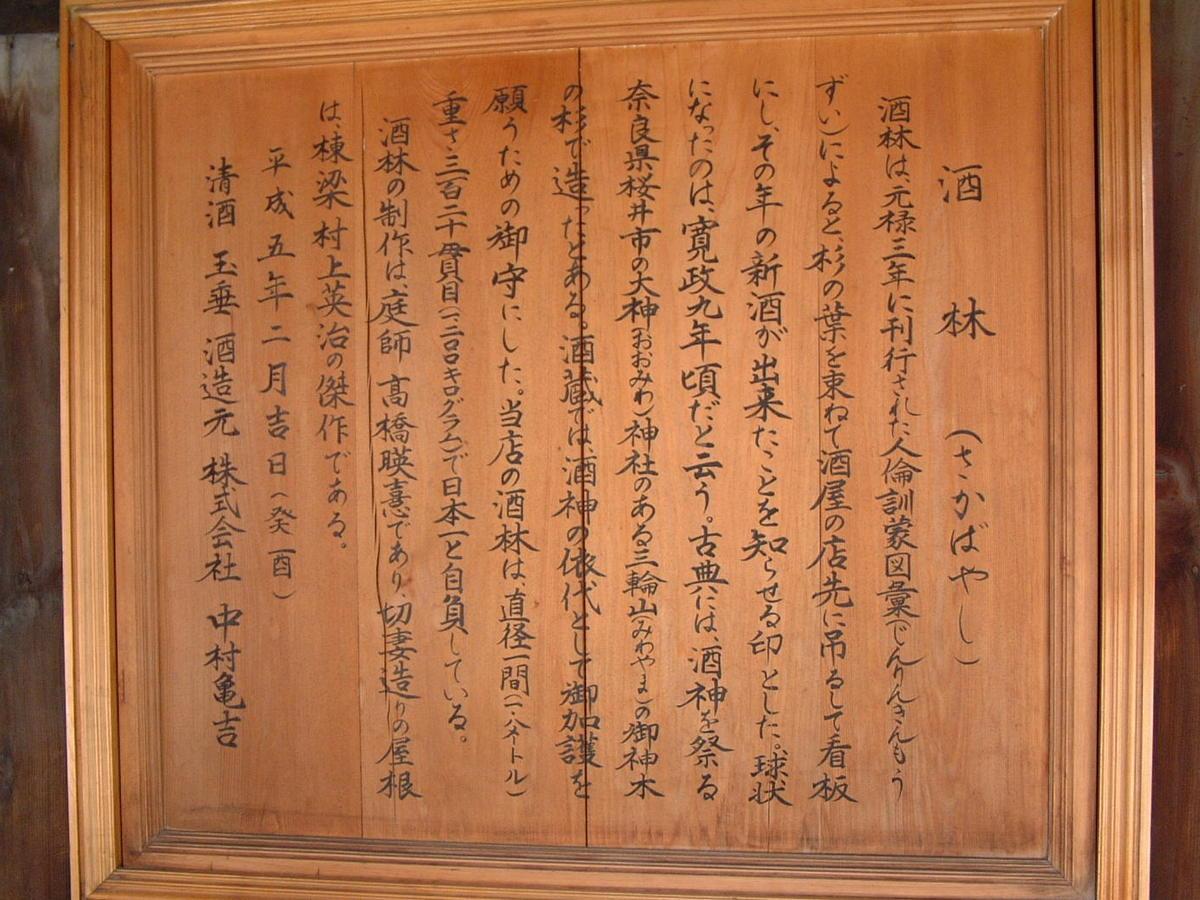 酒林 (さかばやし)
酒林は元禄三年に刊行された人倫訓蒙図彙(じんりんきんもう
ずい)によると、杉の葉を束ねて酒屋の店先に吊るして看板
にし、その年の新酒が出来たことを知らせる印とした。球状
になったのは、寛政九年頃だと云う。古典には、酒神を祭る
奈良県桜井市の大神(おおみわ)神社のある三輪山(みわやま)の御神木
の杉で造ったとある。酒蔵では、酒神の依代として御加護を
願うための御守にした。当店の酒林は、直径一間(一・八メートル)
重さ三百二十貫目(一二〇〇キログラム)で日本一と自負している。
酒林の制作は、庭師 高橋暎憙であり、切妻造りの屋根
は、棟梁 村上英治の傑作である。
平成五年二月吉日(癸酉)
清酒 玉垂 酒造元 株式会社 中村亀吉